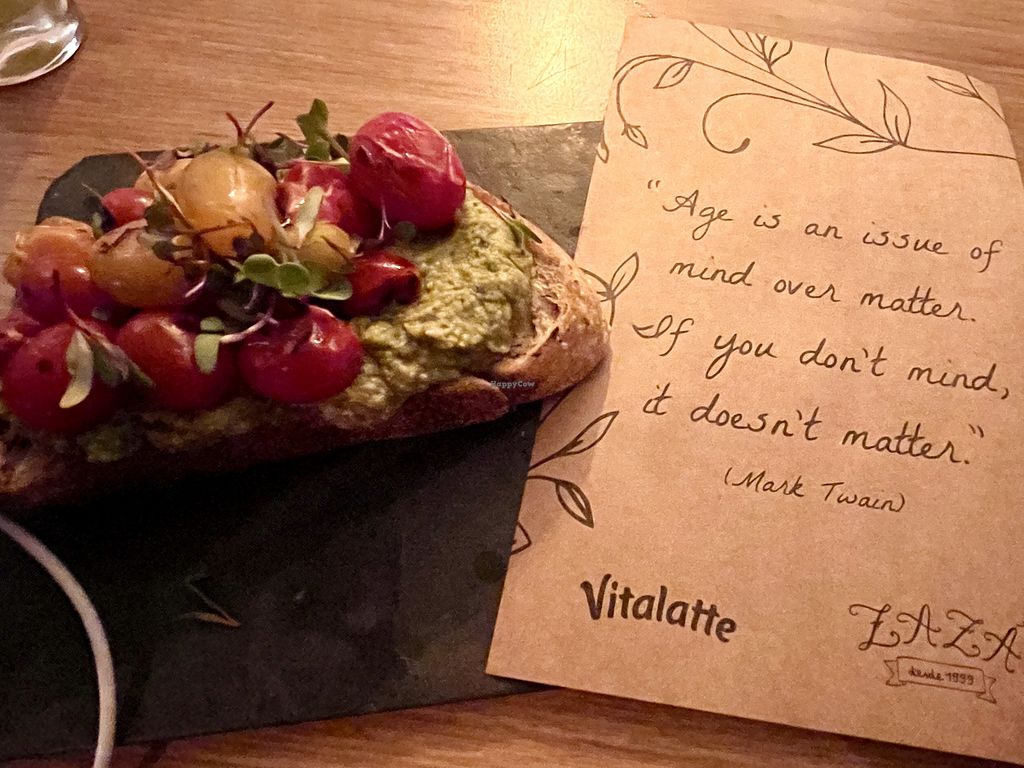 "Age is an issue of
mind over matter.
If you don't mind,
it doesn't matter."
(Mark Twain)
Vitalatte
ZAZA
desde 1999
HappyCow